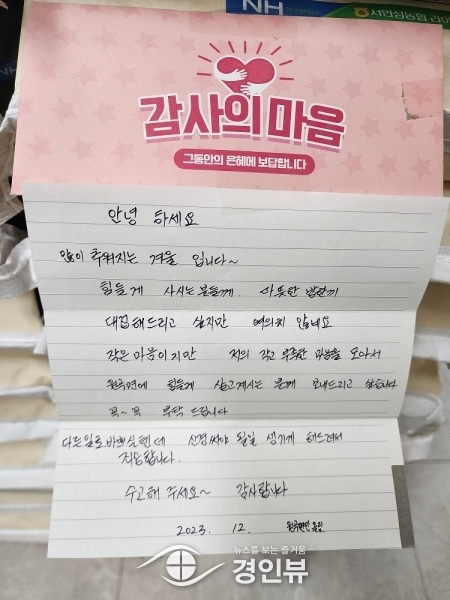 NH
서안성농협 라이
감사의 마음
그동안의 은혜에 보답합니다
안녕 하세요
많이 추워지는 겨울 입니다~
힘들게 사시는 분들께. 따뜻한 밥한끼
대접해드리고 싶지만 여의치 않네요
작은 마음이지만 저의 작고 부족한 마음을 모아서
원곡면에 힘들게 살고계시는 분께 보내드리고 싶습니다
꼭~ 꼭 부탁 드립니다
다른일로 바쁘실텐데 신경써야 될일 생기게 해드려서
죄송합니다.
수고해 주세요~ 감사합니다
2023. 12. 원곡면민 올림
뉴스를 보는 즐거움
경인뷰